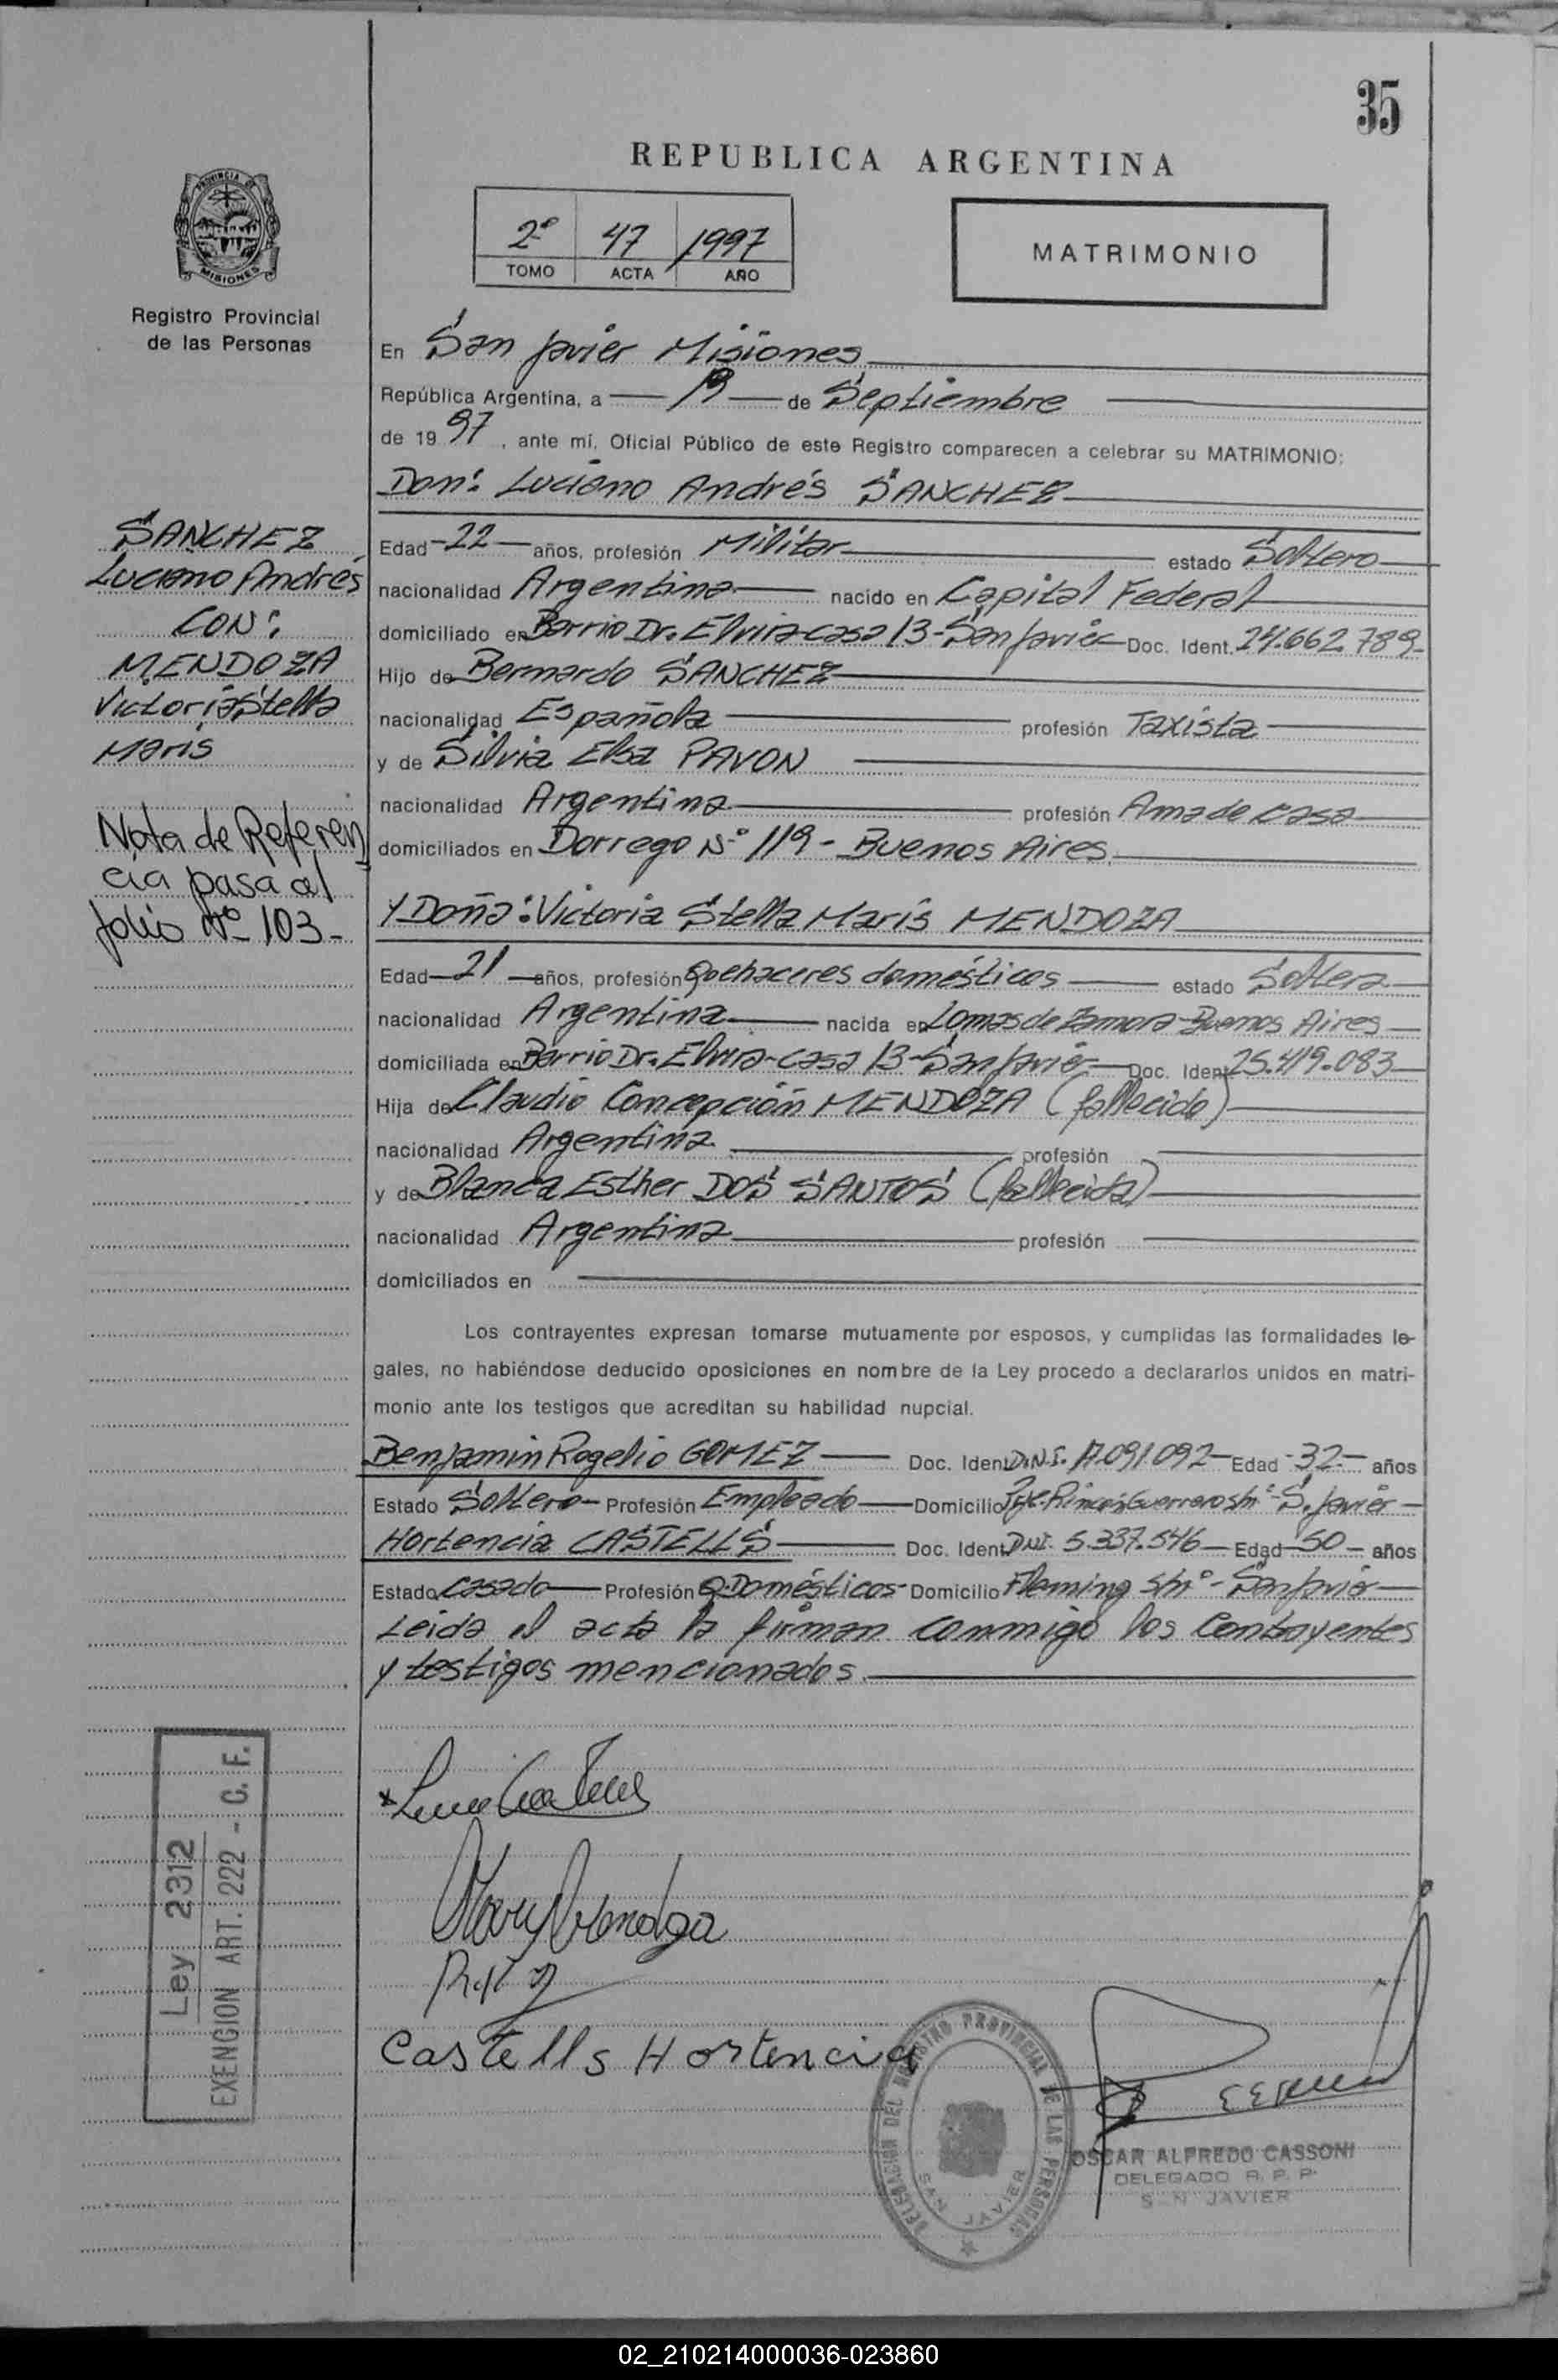 35
REPUBLICA ARGENTINA
2º 47 1997
TOMO ACTA AÑO
MATRIMONIO
PROVINCIA DE
MISIONES
Registro Provincial
de las Personas
En San Javier Misiones
República Argentina, a 19 de Septiembre
de 19 97, ante mí, Oficial Público de este Registro comparecen a celebrar su MATRIMONIO:
Don: Luciano Andrés SANCHEZ
Edad 22 años, profesión Militar estado Soltero
nacionalidad Argentina nacido en Capital Federal
domiciliado en Barrio Dr. Elvira-casa 13-San Javier Doc. Ident. 24.662.789
Hijo de Bernardo SANCHEZ
nacionalidad Española profesión Taxista
y de Silvia Elsa PAVON
nacionalidad Argentina profesión Ama de casa
domiciliados en Dorrego Nº 119 - Buenos Aires
Y Doña: Victoria Stella Maris MENDOZA
Edad 21 años, profesión Quehaceres domésticos estado Soltera
nacionalidad Argentina nacida en Lomas de Zamora-Buenos Aires
domiciliada en Barrio Dr. Elvira-casa 13-San Javier Doc. Ident. 25.419.083
Hija de Claudio Concepción MENDOZA (fallecido)
nacionalidad Argentina profesión
y de Blanca Esther DOS SANTOS (fallecida)
nacionalidad Argentina profesión
domiciliados en
Los contrayentes expresan tomarse mutuamente por esposos, y cumplidas las formalidades le-
gales, no habiéndose deducido oposiciones en nombre de la Ley procedo a declararlos unidos en matri-
monio ante los testigos que acreditan su habilidad nupcial.
Benjamin Rogelio GOMEZ Doc. Ident. D.N.I. 17.091.092 Edad 32 años
Estado Soltero Profesión Empleado Domicilio Guerrero s/nº - S. Javier
Hortencia CASTELLS Doc. Ident. DNI. 5.337.546 Edad 50 años
Estado casada Profesión Q.Domésticos Domicilio Fleming s/nº - San Javier
Leida el acta la firman conmigo los Contrayentes
y testigos mencionados.
SANCHEZ
Luciano Andrés
CON:
MENDOZA
Victoria Stella
Maris
Nota de Referen
cia pasa al
folio Nº 103-
Ley 2312
EXENCION ART. 222 - C. F.
Mary Mendoza
Castells Hortencia
DELEGACION DEL REGISTRO PROVINCIAL DE LAS PERSONAS
SAN JAVIER
OSCAR ALFREDO CASSONI
DELEGADO R. P. P.
S N JAVIER
02_210214000036-023860